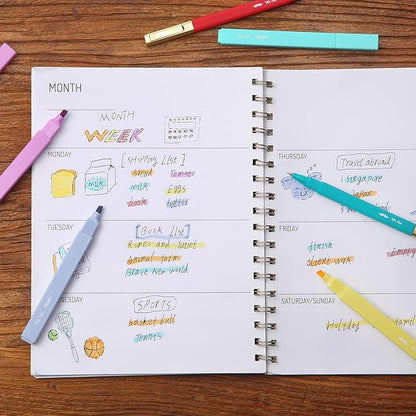 MONTH
MONTH
WEEK
MONDAY
[SHOPPING LIST]
bread Tomato
milk Eggs
butter
MILK
TUESDAY
[Book List]
Romeo and Juliet
Animal farm
Brave new world
WEDNESDAY
SPORTS
basket ball
Tennis
THURSDAY
Travel abroad
1. Singapore
2. Japan
3.
FRIDAY
finish
client work
Empty
SATURDAY/SUNDAY
Holiday